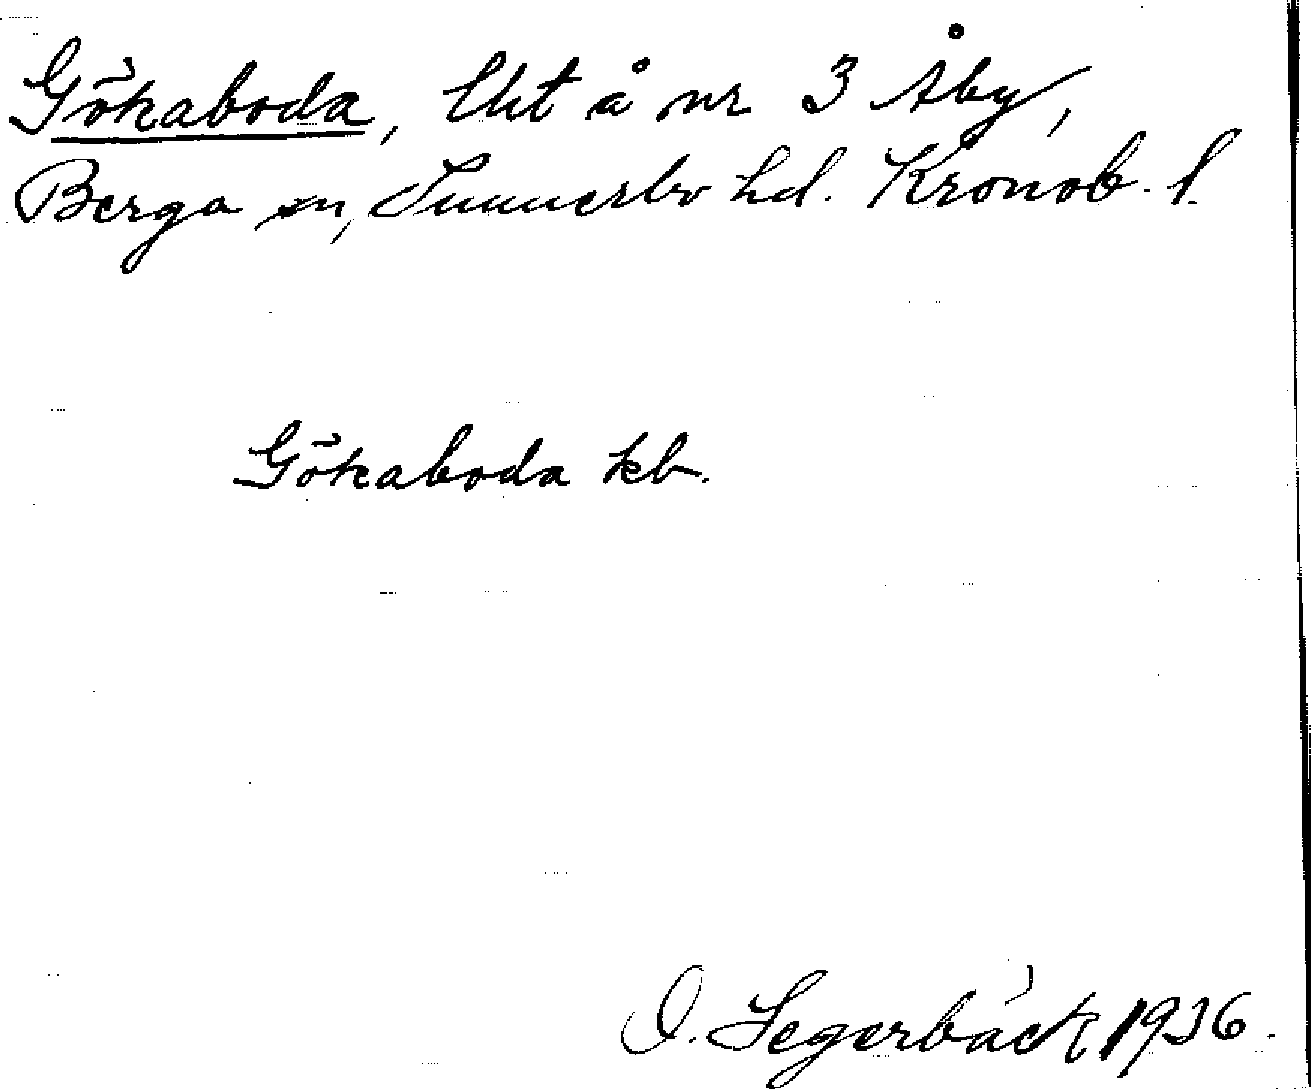 Gökaboda, lht å nr 3 Åby,
Berga sn, Sunnerbo hd. Kronob. l.
Gökaboda kb.
O. Segerbäck 1936.